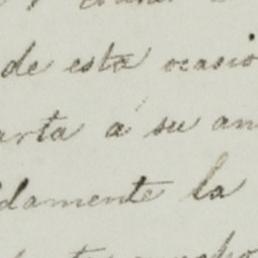 de esta ocasio
arta á su an
damente la